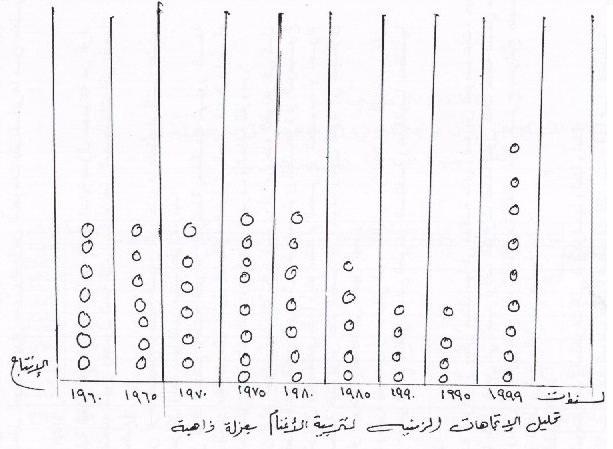 الإنتاج
١٩٦٠ ١٩٦٥ ١٩٧٠ ١٩٧٥ ١٩٨٠ ١٩٨٥ ١٩٩٠ ١٩٩٥ ١٩٩٩ السنوات
تحليل الإتجاهات الزمنيه لتربية الأغنام بعزلة ذاهبة